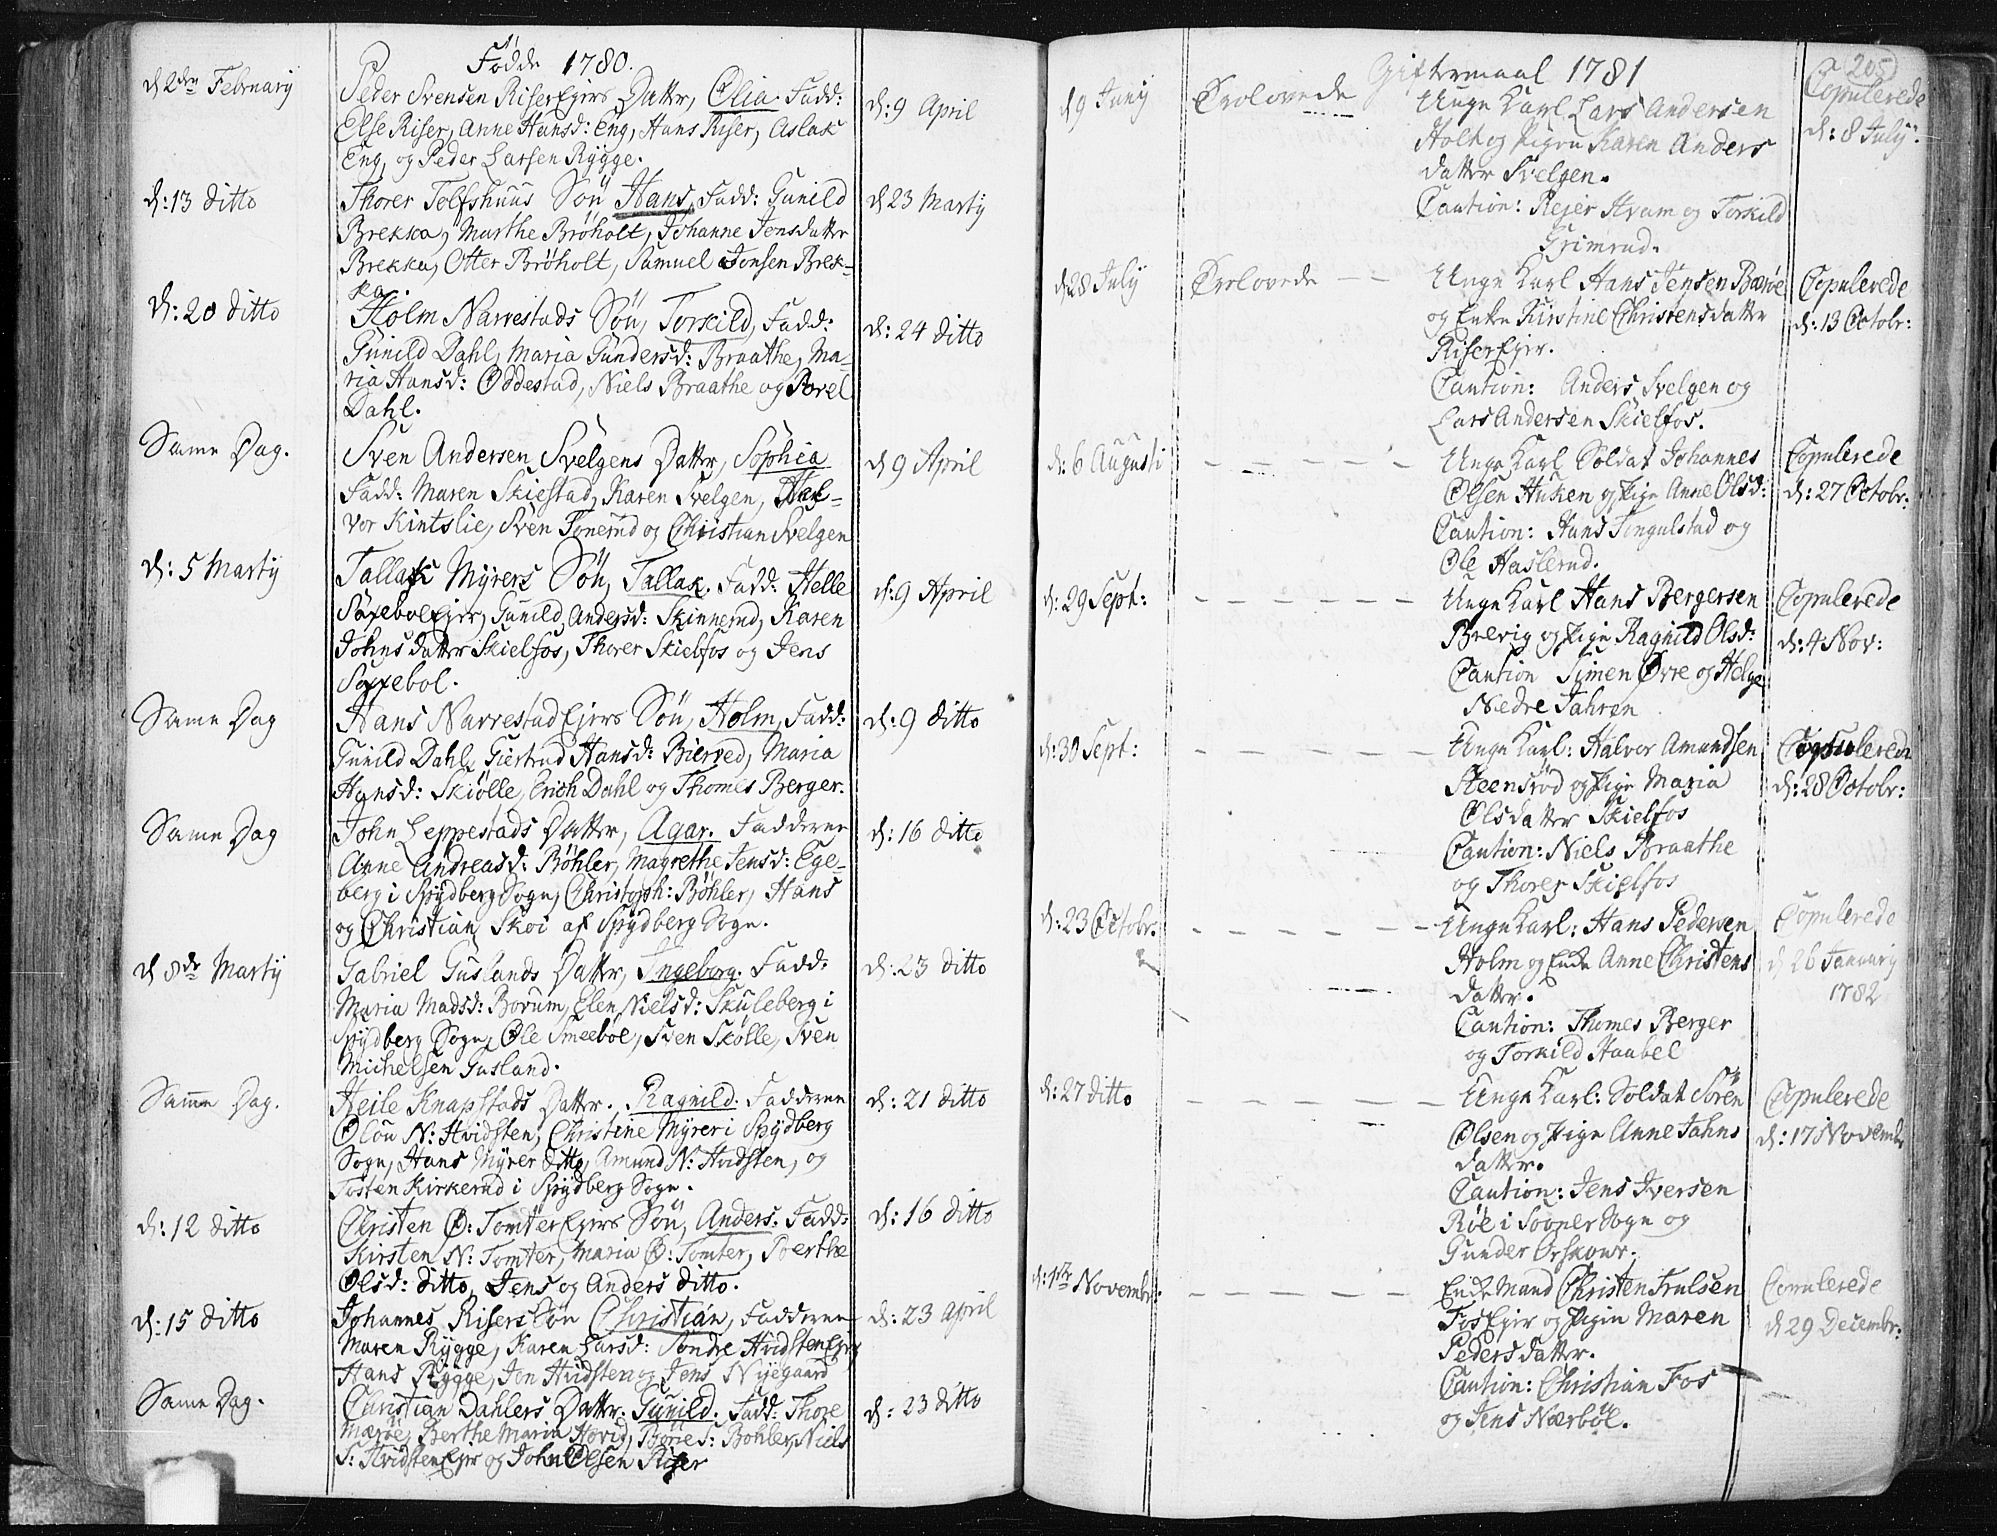 Fødde 1780.
d 2den February
Peder Svensen RiserEjers Datter, Olia. Fadd:
d: 9 April
Else Riser, Anne Hansd: Eng, Hans Riser, Aslak
Eng, og Peder Larsen Rygge.
d: 13 ditto
Thorer Tolfshuus Søn Hans, Fadd: Gunild
d 23 Martÿ
Brekka, Marthe Brøholt, Johanne Jensdatter
Brekka, Otter Brøholt, Samuel Jonsen Brek-
ka.
d: 20 ditto
Holm Narrestads Søn, Torkild, Fadd:
d: 24 ditto
Gunild Dahl, Maria Gundersd: Braathe, Ma-
ria Hansd: Oddestad, Niels Braathe og Povel
Dahl.
Same Dag.
Sven Andersen Svelgens Datter, Sophia
d 9 April
Fadd: Maren Skiestad, Karen Svelgen, Hal-
vor Kintslie, Sven Tonerud og Christian Svelgen
d: 5 Martÿ
Tallak Myrers Søn, Tallak. Fadd: Helle
d: 9 April
SaxebolEjer, Gunild Andersd: Skinnerud, Karen
Johns datter Skielfos, Thorer Skielfos og Jens
Saxebol.
Same Dag
Hans NarrestadEjers Søn, Holm, Fadd:
d: 9 ditto
Gunild Dahl, Giertrud Hansd: Bierved, Maria
Hansd: Skiølle, Erich Dahl og Thomes Berger.
Same Dag
John Leppestads Datter, Agar. Fadderne
d: 16 ditto
Anne Andreasd: Bøhler, Magrethe Jensd: Ege-
berg i Spydberg Sogn, Christoph: Bøhler, Hans
og Christian Skoi af Spydberg Sogn.
d 8de Martÿ
Gabriel Guslands Datter, Ingeborg. Fadd:
d: 23 ditto
Maria Madsd: Borum, Elen Nielsd: Skuleberg i
Spydberg Sogn, Ole Smeeboe, Sven Skølle, Sven
Michelsen Gusland.
Same Dag.
Heile Knapstads Datter. Ragnild. Fadderne
d: 21 ditto
Oløu N: Hvidsten, Christine Myrer i Spydberg
Sogn, Hans Myrer ditto, Amund N: Hvidsten, og
Tosten Kirkerud i Spydberg Sogn.
d: 12 ditto
Christen Ø: TomterEjers Søn, Anders. Fadd:
d: 16 ditto
Kirsten N: Tomter, Maria Ø: Tomter, Boerthe
Olsd: ditto, Jens og Anders ditto.
d: 15 ditto
Johannes Risers Søn Christian, Fadderne
d: 23 April
Maren Rygge, Karen Larsd: Søndre HvidstenEjer
Hans Rygge, Jon Hvidsten og Jens Nyegaard
Same Dag.
Christian Dahlers Datter. Gunild. Fadd: Thore
d: 23 ditto
Mærøe, Berthe Maria Hovid, Børre S: Bøhler, Niels
S: HvidstenEjer og John Olsen Riser
Giftermaal 1781
205
d 9 Junÿ
Trolovede
Unge Karl Lars Andersen
Copulerede
Holt og Pigen Karen Anders
d: 8 July:
datter Svelgen.
Caution: Rejer Hvam og Torkild
Grimrud.
d 28 July
Trolovede — —
Unge Karl Hans Jensen Bærøe
Copulerede
og Enke Kirstine Christensdatter
d: 13 Octobr:
RiserEjer.
Caution: Anders Svelgen og
Lars Andersen Skielfos.
d: 6 Augusti
— — — — —
Unge Karl Soldat Johannes
Copulerede
Olsen Huken og Pige Anne Olsd:
d: 27 Octobr:
Caution: Hans Tingulstad og
Ole Haslerud.
d: 29 Sept:
— — — — —
Unge Karl Hans Bergersen
Copulerede
Brevig og Pige Ragnild Olsd:
d: 4 Nov:
Caution Simen Øvre og Helge
Nedre Jahren
d: 30 Sept:
— — — — —
Unge Karl: Halvor Amundsen
Copulerede
Steensrød og Pige Maria
d: 28 Octobr:
Olsdatter Skielfos
Caution: Niels Braathe
og Thorer Skielfos
d: 23 Octobr:
— — — — —
Unge Karl: Hans Pedersen
Copulerede
Holm og Enke Anne Christens
d 26 January
datter.
1782
Caution: Thomes Berger
og Torkild Haabel
d: 27 ditto
— — — — —
Unge Karl: Soldat Søren
Copulerede
Olsen og Pige Anne Jahns
d: 17 Novembr
datter.
Caution: Jens Iversen
Røe i Sovner Sogn og
Gunder Orskour.
d: 1te Novembr:
— — — — —
Enke Mand Christen Trulsen
Copulerede
FosEjer og Pigen Maren
d 29 Decembr:
Pedersdatter.
Caution: Christian Fos
og Jens Nærbøl.